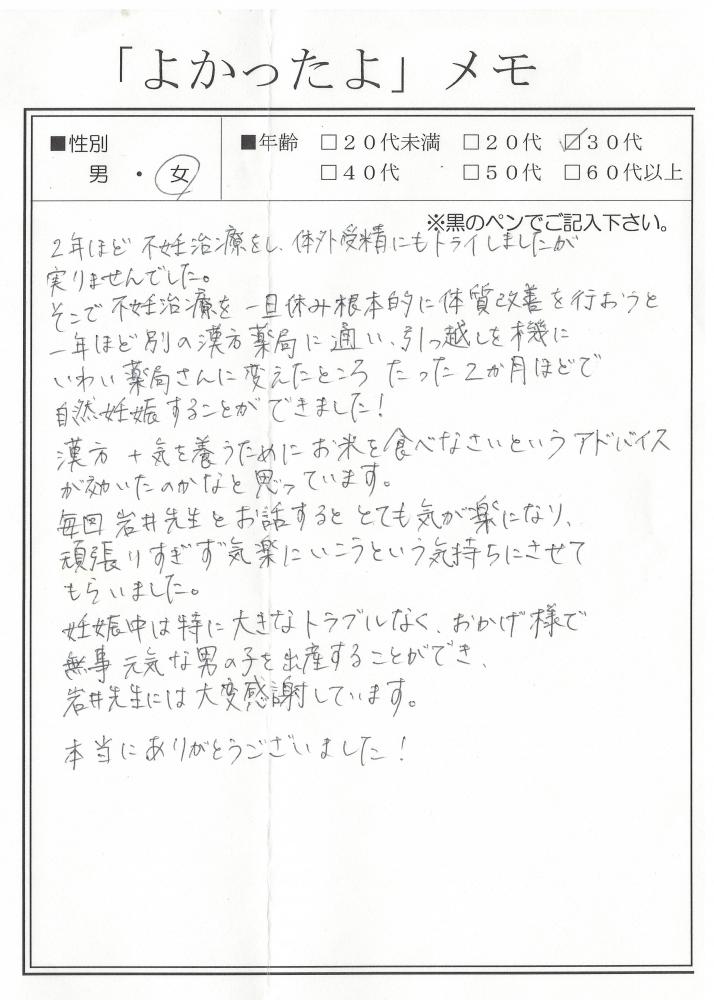 「よかったよ」メモ
■性別
男・女
■年齢 □20代未満 □20代 ☑30代
□40代 □50代 □60代以上
※黒のペンでご記入下さい。
2年ほど不妊治療をし、体外受精にもトライしましたが
実りませんでした。
そこで不妊治療を一旦休み根本的に体質改善を行おうと
一年ほど別の漢方薬局に通い、引っ越しを機に
いわい薬局さんに変えたところ たった2か月ほどで
自然妊娠することができました!
漢方+気を養うためにお米を食べなさいというアドバイス
が効いたのかなと思っています。
毎回岩井先生とお話するととても気が楽になり、
頑張りすぎず気楽にいこうという気持ちにさせて
もらいました。
妊娠中は特に大きなトラブルなく、おかげ様で
無事元気な男の子を出産することができ、
岩井先生には大変感謝しています。
本当にありがとうございました!